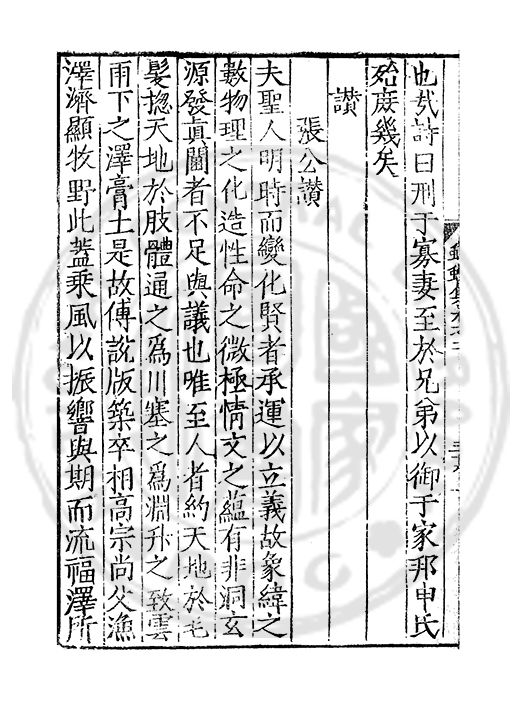 也哉詩曰刑于寡妻至於兄弟以御于家邦申氏
殆庶幾矣
讚
張公讚
夫聖人明時而變化賢者承運以立義故象緯之
數物理之化造性命之微極情文之蘊有非洞玄
源發眞闓者不足與議也唯至人者約天地於毛
髮揔天地於肢體通之爲川塞之爲淵升之致雲
雨下之澤膏土是故傅說版築卒相高宗尚父漁
澤濟顯牧野此蓋乗風以振響與期而流福澤所